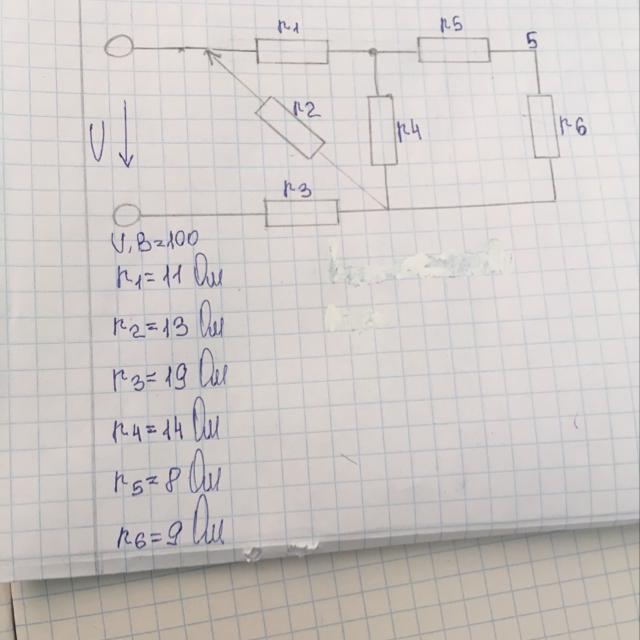 r1
r5
5
r2
r4
r6
U
r3
U, B=100
r1=11 Ом
r2=13 Ом
r3=19 Ом
r4=14 Ом
r5=8 Ом
r6=9 Ом